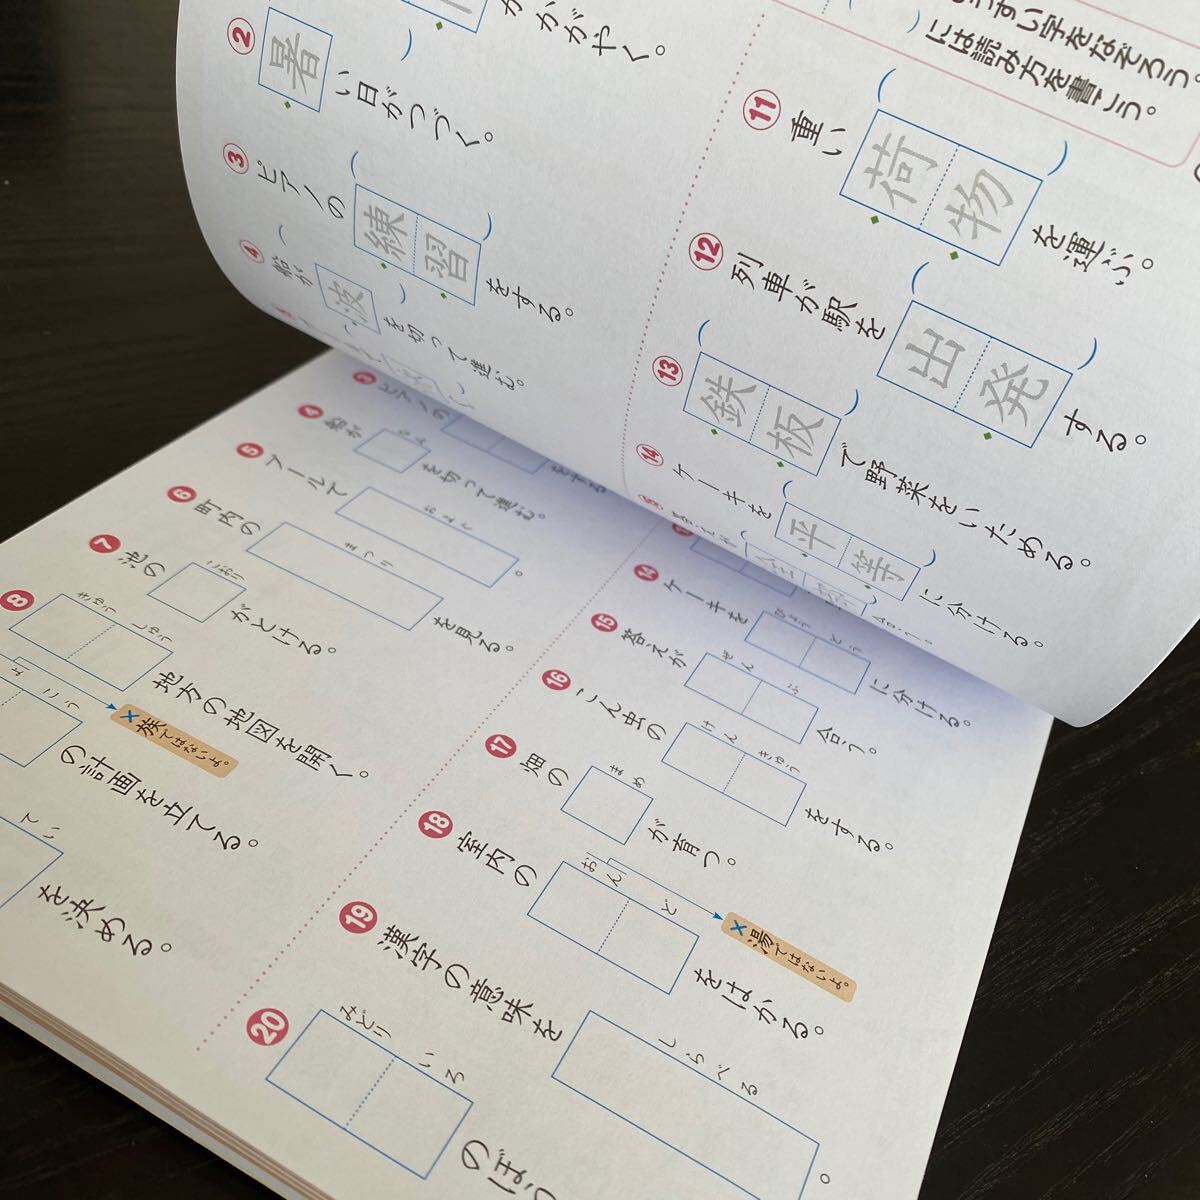 うすい字をなぞろう。
には読み方を書こう。
かがやく。
② 暑い日がつづく。
③ ピアノの練習をする。
④ 船が波を切って進む。
⑪ 重い荷物を運ぶ。
⑫ 列車が駅を出発する。
⑬ 鉄板で野菜をいためる。
⑭ ケーキを平等に分ける。
③ ピアノの をする
④ 船が なみ を切って進む。
⑤ プールで およぐ 。
⑥ 町内の まつり を見る。
⑦ 池の こおり がとける。
⑧ きゅう しゅう 地方の地図を開く。
×族ではないよ。
りょ こう の計画を立てる。
てい を決める。
⑭ ケーキを びょう どう に分ける。
⑮ 答えが ぜん ぶ 合う。
⑯ こん虫の けん きゅう をする。
⑰ 畑の まめ が育つ。
⑱ 室内の おん ど をはかる。
×湯ではないよ。
⑲ 漢字の意味を しらべる 。
⑳ みどり いろ のぼう